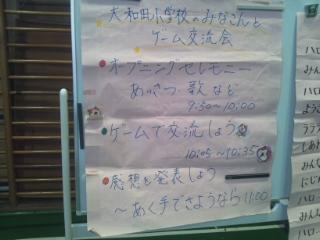 大和田小学校のみなさんと
ゲーム交流会
オープニングセレモニー
あいさつ・歌など
9:50~10:00
ゲームで交流しよう
10:05~10:35
感想を発表しよう
~あく手でさようなら 11:00
ハロー
みんな
ハロ
よう
ララ
しあわ
みん
にじ
ハロー
みん
ハロー